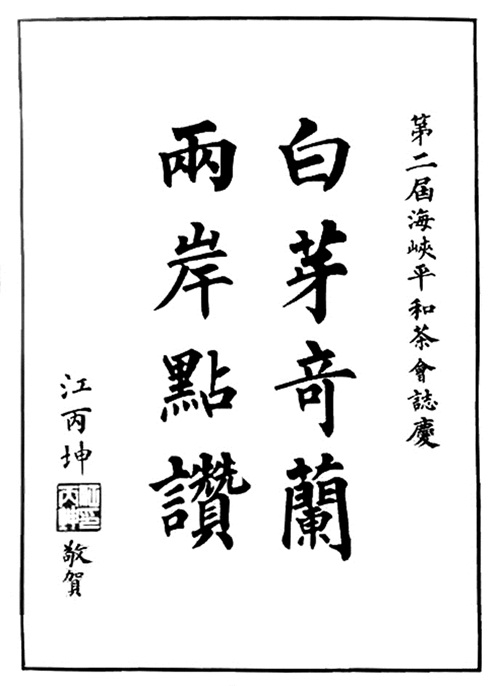 第二屆海峽平和茶會誌慶
白芽奇蘭
兩岸點讚
江丙坤
敬賀